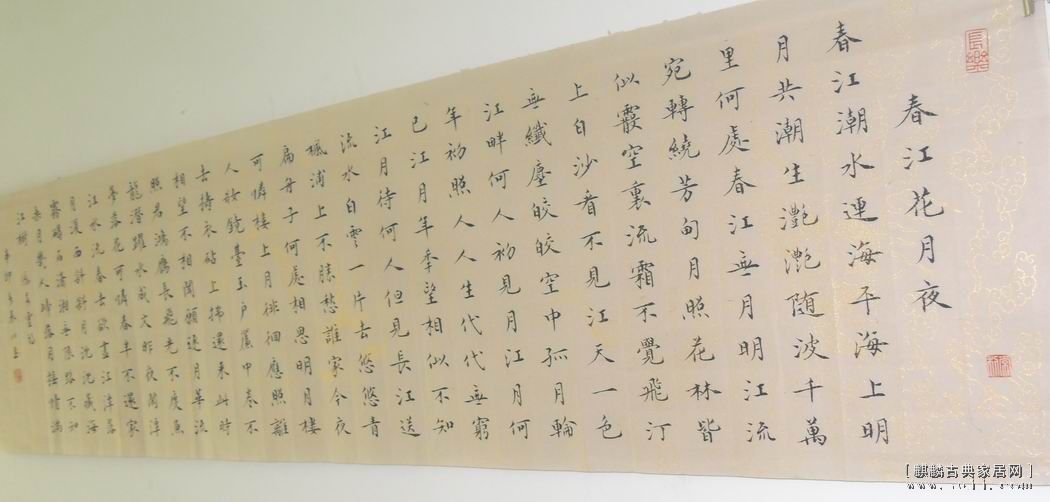 長樂
春江花月夜
春江潮水連海平海上明
月共潮生灔灔随波千萬
里何處春江無月明江流
宛轉繞芳甸月照花林皆
似霰空裏流霜不覺飛汀
上白沙看不見江天一色
無纖塵皎皎空中孤月輪
江畔何人初見月江月何
年初照人人生代代無窮
已江月年年望相似不知
江月待何人但見長江送
流水白雲一片去悠悠青
楓浦上不勝愁誰家今夜
扁舟子何處相思明月樓
可憐樓上月徘徊應照離
人妝鏡臺玉户簾中卷不
去擣衣砧上拂還来此時
相望不相聞願逐月華流
照君鴻雁長飛光不度魚
龍潛躍水成文昨夜閑潭
夢落花可憐春半不還家
江水流春去欲盡江潭落
月復西斜斜月沈沈藏海
霧碣石瀟湘無限路不知
乘月幾人歸落月摇情滿
江樹
辛卯
[麒麟古典家居网]